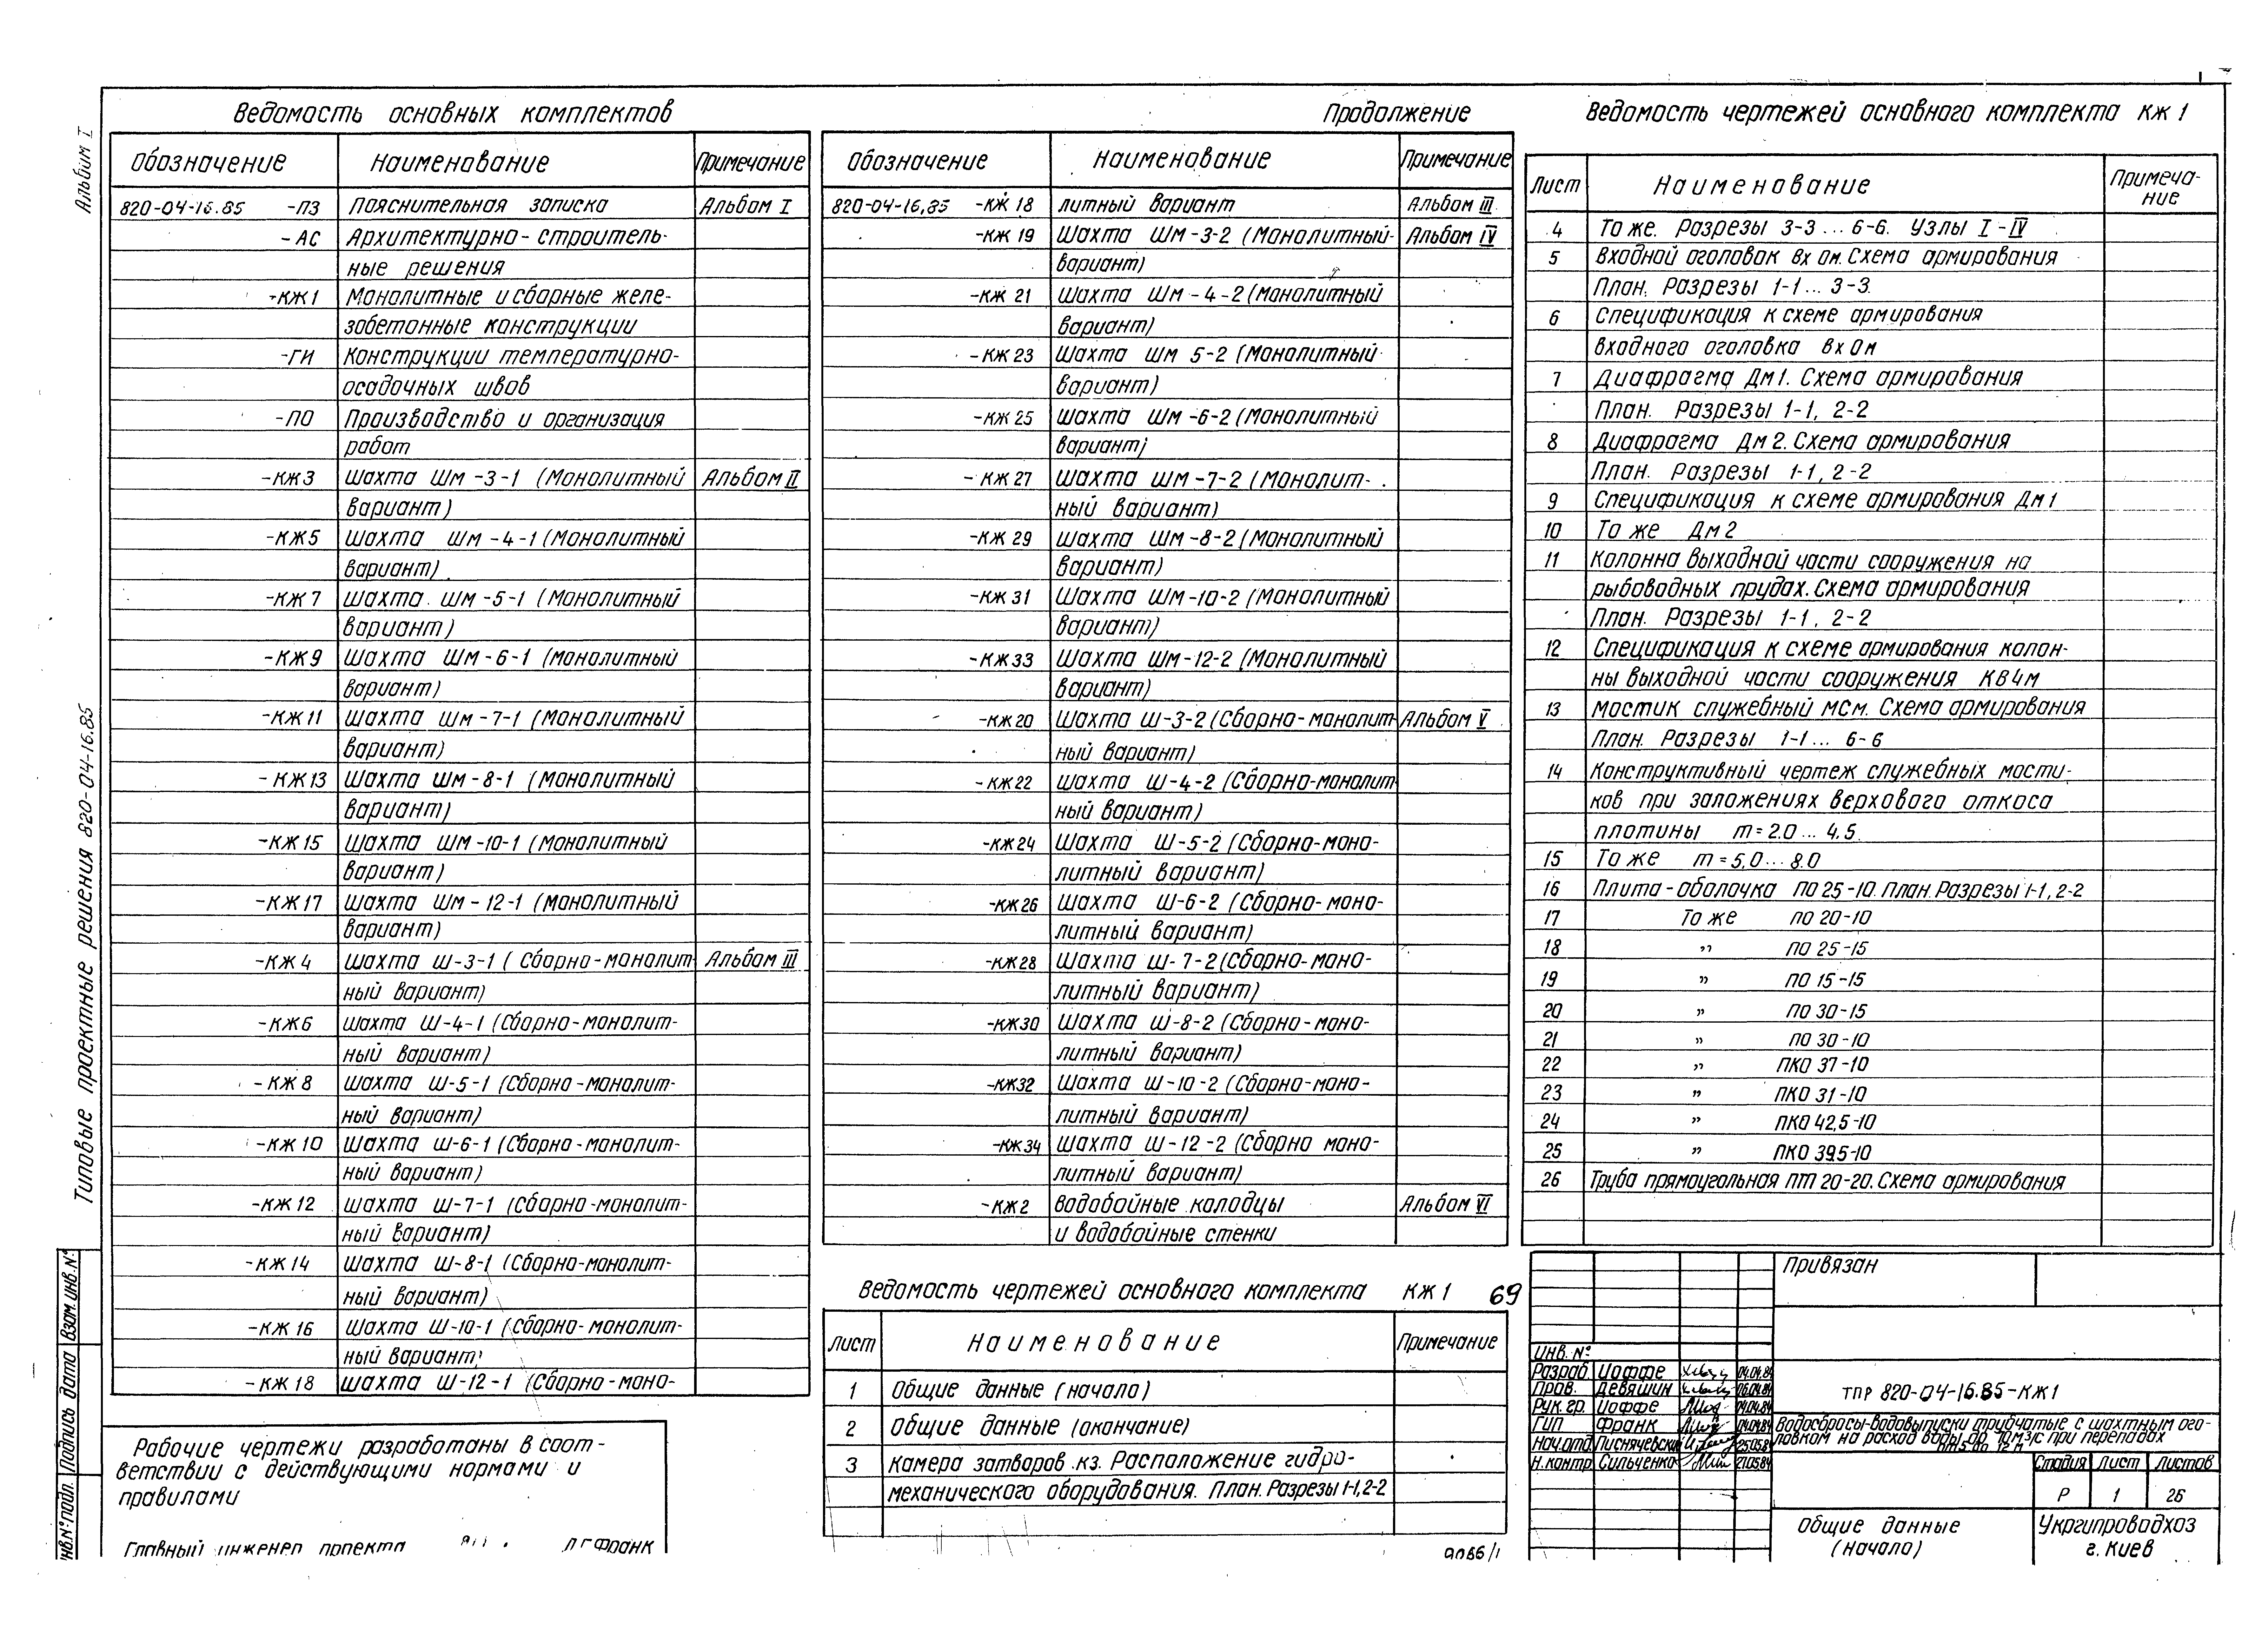 Альбом I
Типовые проектные решения 820-04-16.85
Ведомость основных комплектов
Обозначение Наименование Примечание
820-04-16.85 -ПЗ Пояснительная записка Альбом I
-АС Архитектурно-строитель-
ные решения
-КЖ1 Монолитные и сборные желе-
зобетонные конструкции
-ГИ Конструкции температурно-
осадочных швов
-ПО Производство и организация
работ
-КЖ3 Шахта Шм-3-1 (Монолитный Альбом II
вариант)
-КЖ5 Шахта Шм-4-1 (Монолитный
вариант)
-КЖ7 Шахта Шм-5-1 (Монолитный
вариант)
-КЖ9 Шахта Шм-6-1 (Монолитный
вариант)
-КЖ11 Шахта Шм-7-1 (Монолитный
вариант)
-КЖ13 Шахта Шм-8-1 (Монолитный
вариант)
-КЖ15 Шахта Шм-10-1 (Монолитный
вариант)
-КЖ17 Шахта Шм-12-1 (Монолитный
вариант)
-КЖ4 Шахта Ш-3-1 (Сборно-монолит- Альбом III
ный вариант)
-КЖ6 Шахта Ш-4-1 (Сборно-монолит-
ный вариант)
-КЖ8 Шахта Ш-5-1 (Сборно-монолит-
ный вариант)
-КЖ10 Шахта Ш-6-1 (Сборно-монолит-
ный вариант)
-КЖ12 Шахта Ш-7-1 (Сборно-монолит-
ный вариант)
-КЖ14 Шахта Ш-8-1 (Сборно-монолит-
ный вариант)
-КЖ16 Шахта Ш-10-1 (Сборно-монолит-
ный вариант)
-КЖ18 Шахта Ш-12-1 (Сборно-моно-
Рабочие чертежи разработаны в соот-
ветствии с действующими нормами и
правилами
Главный инженер проекта Л.Г.Франк
Продолжение
Обозначение Наименование Примечание
820-04-16.85 -КЖ18 литный вариант Альбом III
-КЖ19 Шахта Шм-3-2 (Монолитный Альбом IV
вариант)
-КЖ21 Шахта Шм-4-2 (Монолитный
вариант)
-КЖ23 Шахта Шм 5-2 (Монолитный
вариант)
-КЖ25 Шахта Шм-6-2 (Монолитный
вариант)
-КЖ27 Шахта Шм-7-2 (Монолит-
ный вариант)
-КЖ29 Шахта Шм-8-2 (Монолитный
вариант)
-КЖ31 Шахта Шм-10-2 (Монолитный
вариант)
-КЖ33 Шахта Шм-12-2 (Монолитный
вариант)
-КЖ20 Шахта Ш-3-2 (Сборно-монолит- Альбом V
ный вариант)
-КЖ22 Шахта Ш-4-2 (Сборно-монолит-
ный вариант)
-КЖ24 Шахта Ш-5-2 (Сборно-моно-
литный вариант)
-КЖ26 Шахта Ш-6-2 (Сборно-моно-
литный вариант)
-КЖ28 Шахта Ш-7-2 (Сборно-моно-
литный вариант)
-КЖ30 Шахта Ш-8-2 (Сборно-моно-
литный вариант)
-КЖ32 Шахта Ш-10-2 (Сборно-моно-
литный вариант)
-КЖ34 Шахта Ш-12-2 (Сборно моно-
литный вариант)
-КЖ2 Водобойные колодцы Альбом VI
и водобойные стенки
Ведомость чертежей основного комплекта КЖ1 69
Лист Наименование Примечание
1 Общие данные (начало)
2 Общие данные (окончание)
3 Камера затворов кз. Расположение гидро-
механического оборудования. План. Разрезы 1-1, 2-2
Ведомость чертежей основного комплекта КЖ1
Лист Наименование Примеча-
ние
4 То же. Разрезы 3-3...6-6. Узлы I-IV
5 Входной оголовок вх ом. Схема армирования
План. Разрезы 1-1...3-3.
6 Спецификация к схеме армирования
входного оголовка вх Ом
7 Диафрагма Дм1. Схема армирования
План. Разрезы 1-1, 2-2
8 Диафрагма Дм2. Схема армирования
План. Разрезы 1-1, 2-2
9 Спецификация к схеме армирования Дм1
10 То же Дм2
11 Колонна выходной части сооружения на
рыбоводных прудах. Схема армирования
План. Разрезы 1-1, 2-2
12 Спецификация к схеме армирования колон-
ны выходной части сооружения КВ4м
13 Мостик служебный МСм. Схема армирования
План. Разрезы 1-1...6-6
14 Конструктивный чертеж служебных мости-
ков при заложениях верхового откоса
плотины m=2.0...4.5.
15 То же m=5,0...8.0
16 Плита-оболочка ПО 25-10. План. Разрезы 1-1, 2-2
17 То же ПО 20-10
18 " ПО 25-15
19 " ПО 15-15
20 " ПО 30-15
21 " ПО 30-10
22 " ПКО 37-10
23 " ПКО 31-10
24 " ПКО 42,5-10
25 " ПКО 39.5-10
26 Труба прямоугольная ПТ 20-20. Схема армирования
Привязан
Инв. №
Разраб. Иоффе 04.04.84
Пров. Девяшин 06.04.84
Рук. гр. Иоффе 04.04.84
ГИП Франк 04.04.84
Нач.отд. Писнячевский 25.05.84
Н.контр. Сильченко 21.05.84
ТПР 820-04-16.85-КЖ1
Водосбросы-водовыпуски трубчатые с шахтным ого-
ловком на расход воды до 10 м3/с при перепадах
от 5 до 12 м
Стадия Лист Листов
Р 1 26
Общие данные
(начало)
Укргипроводхоз
г. Киев
Взам. инв. №
Подпись дата
Инв. № подл.